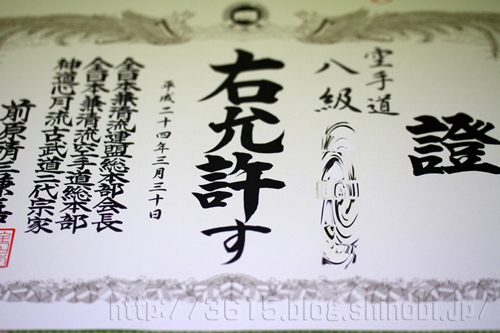 證
空手道
八級
右允許す
平成二十四年三月三十日
全日本兼清流連盟総本部会長
全日本兼清流空手道総本部
神道心月流古武道二代宗家
前原清
http://3615.blog.shinobi.jp/